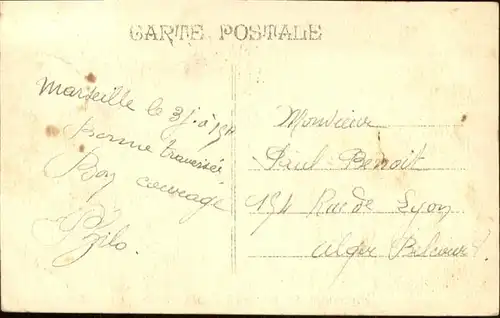 CARTE POSTALE
Marseille le
bonne traversée
Bon courage
Monsieur
Paul Benoit
Rue de Lyon
Alger Belcourt